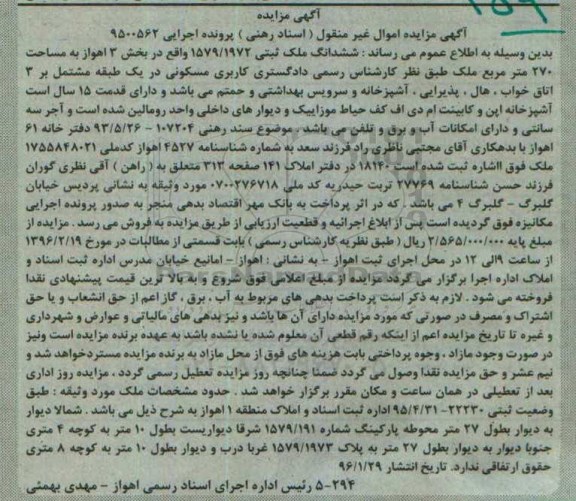 ۱۵۹
آگهی مزایده
آگهی مزایده اموال غیر منقول ( اسناد رهنی ) پرونده اجرایی ۹۵۰۰۵۶۲
بدین وسیله به اطلاع عموم می رساند : ششدانگ ملک ثبتی ۱۵۷۹/۱۹۷۲ واقع در بخش ۳ اهواز به مساحت
۲۷۰ متر مربع ملک طبق نظر کارشناس رسمی دادگستری کاربری مسکونی در یک طبقه مشتمل بر ۳
اتاق خواب ، هال ، پذیرایی ، آشپزخانه و سرویس بهداشتی و حمتم می باشد و دارای قدمت ۱۵ سال است
آشپزخانه اپن و کابینت ام دی اف کف حیاط موزاییک و دیوار های داخلی واحد رومالین شده است و آجر سه
سانتی و دارای امکانات آب و برق و تلفن می باشد . موضوع سند رهنی ۱۰۷۲۰۴ – ۹۳/۵/۲۶ دفتر خانه ۶۱
اهواز با بدهکاری آقای مجتبی ناظری راد فرزند سعد به شماره شناسنامه ۴۵۲۷ اهواز کدملی ۱۷۵۵۸۴۸۰۲۱
ملک فوق ااشاره ثبت شده است ۱۸۱۴۰ در دفتر املاک ۱۴۱ صفحه ۳۱۳ متعلق به ( راهن ) آقی نظری گوران
فرزند حسن شناسنامه ۲۷۷۶۹ تربت حیدریه کد ملی ۰۷۰۰۲۷۶۷۱۸ مورد وثیقه به نشانی پردیس خیابان
گلبرگ – گلبرگ ۴ می باشد . که در اثر پرداخت به بانک مهر اقتصاد بدهی منجر به صدور پرونده اجرایی
مکانیزه فوق گردیده است پس از ابلاغ اجرائیه و قطعیت ارزیابی از طریق مزایده به فروش می رسد . مزایده از
مبلغ پایه ۲/۵۶۵/۰۰۰/۰۰۰ ریال ( طبق نظریه کارشناس رسمی ) بابت قسمتی از مطالبات در مورخ ۱۳۹۶/۲/۱۹
از ساعت ۹الی ۱۲ در محل اجرای ثبت اهواز – به نشانی : اهواز – امانیه خیابان مدرس اداره ثبت اسناد و
املاک اداره اجرا برگزار می گردد مزایده از مبلغ اعلامی فوق شروع و به بالا ترین قیمت پیشنهادی نقدا
فروخته می شود . لازم به ذکر است پرداخت بدهی های مربوط به آب ، برق ، گاز اعم از حق انشعاب و یا حق
اشتراک و مصرف در صورتی که مورد مزایده دارای آن ها باشد و نیز بدهی های مالیاتی و عوارض و شهرداری
و غیره تا تاریخ مزایده اعم از اینکه رقم قطعی آن معلوم شده یا نشده باشد به عهده برنده مزایده است ونیز
در صورت وجود مازاد ، وجوه پرداختی بابت هزینه های فوق از محل مازاد به برنده مزایده مستردخواهد شد و
نیم عشر و حق مزایده نقدا وصول می گردد ضمنا چنانچه روز مزایده تعطیل رسمی گردد ، مزایده روز اداری
بعد از تعطیلی در همان ساعت و مکان مقرر برگزار خواهد شد . حدود مشخصات ملک مورد وثیقه : طبق
وضعیت ثبتی ۲۲۲۳۰– ۹۵/۴/۳۱ اداره ثبت اسناد و املاک منطقه ۱ اهواز به شرح ذیل می باشد . شمالا دیوار
به دیوار بطول ۲۷ متر محوطه پارکینگ شماره ۱۵۷۹/۱۹۱ شرقا دیواریست بطول ۱۰ متر به کوچه ۴ متری
جنوبا دیوار به دیوار بطول ۲۷ متر به پلاک ۱۵۷۹/۱۹۷۳ غربا درب و دیوار بطول ۱۰ متر به کوچه ۸ متری
حقوق ارتفاقی ندارد. تاریخ انتشار ۹۶/۱/۲۹
۵-۲۹۴ رئیس اداره اجرای اسناد رسمی اهواز – مهدی بهمئی